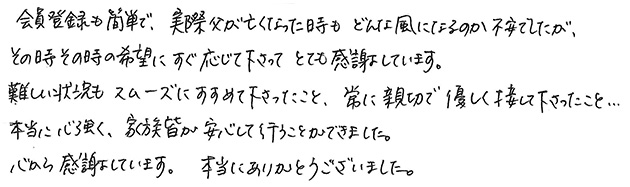 会員登録も簡単で、実際父が亡くなった時も どんな風になるのか不安でしたが、
その時その時の希望に すぐ応じて下さって とても感謝しています。
難しい状況も スムーズにすすめて下さったこと、常に親切で優しく接して下さったこと…
本当に心強く、家族皆が安心して行うことができました。
心から感謝しています。 本当にありがとうございました。